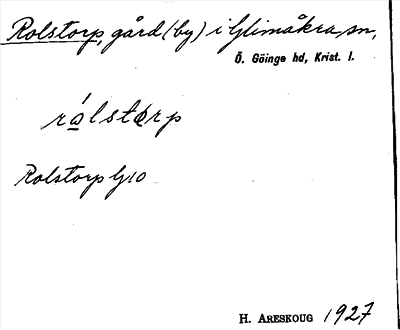 Rolstorp, gård (by) i Glimåkra sn,
Ö. Göinge hd, Krist. l.
rálstorp
Rolstorp G10
H. ARESKOUG 1927